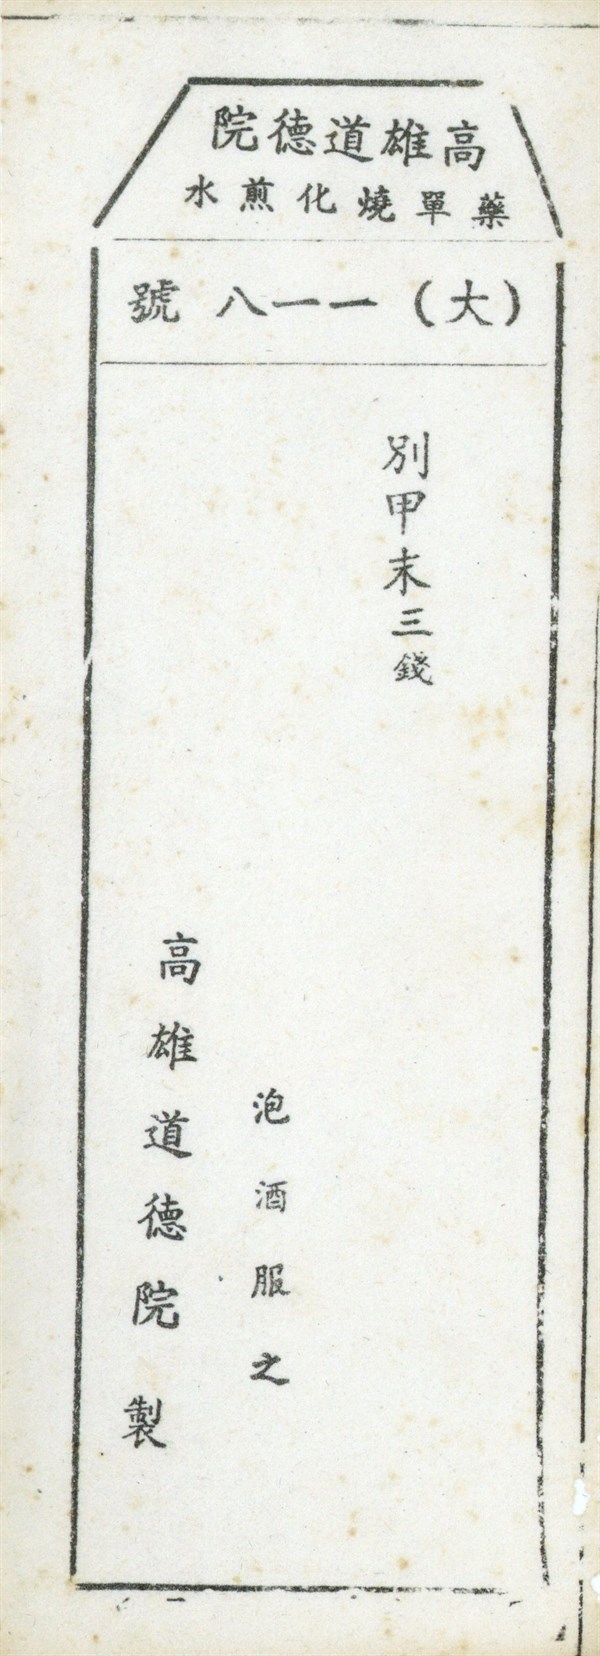 高雄道德院
藥單燒化煎水
(大)一一八號
別甲末三錢
泡酒服之
高雄道德院製